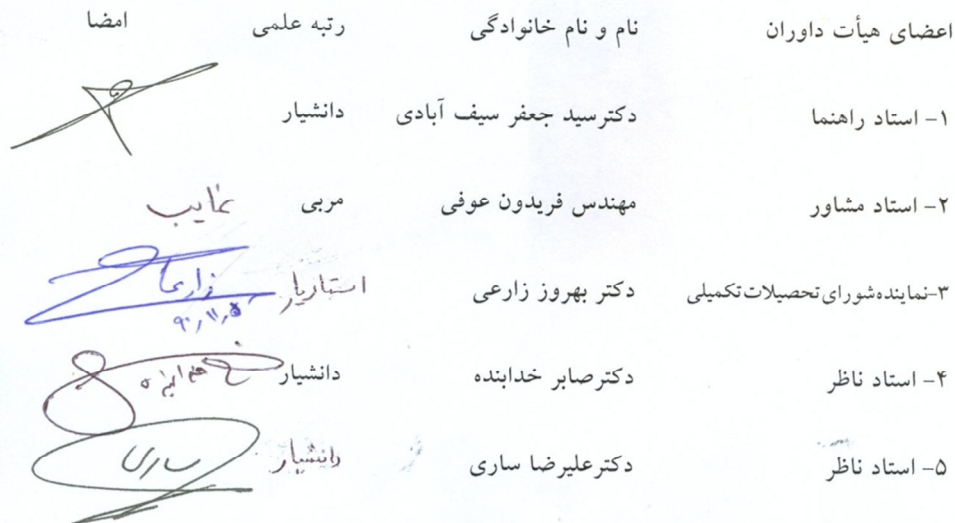 اعضای هیأت داوران نام و نام خانوادگی رتبه علمی امضا
۱- استاد راهنما دکترسید جعفر سیف آبادی دانشیار
۲- استاد مشاور مهندس فریدون عوفی مربی غایب
۳-نماینده‌شورای‌تحصیلات‌تکمیلی دکتر بهروز زارعی استادیار
زارعی
۹۰/۱۱/۵
۴- استاد ناظر دکترصابر خدابنده دانشیار
۵- استاد ناظر دکترعلیرضا ساری دانشیار ساری